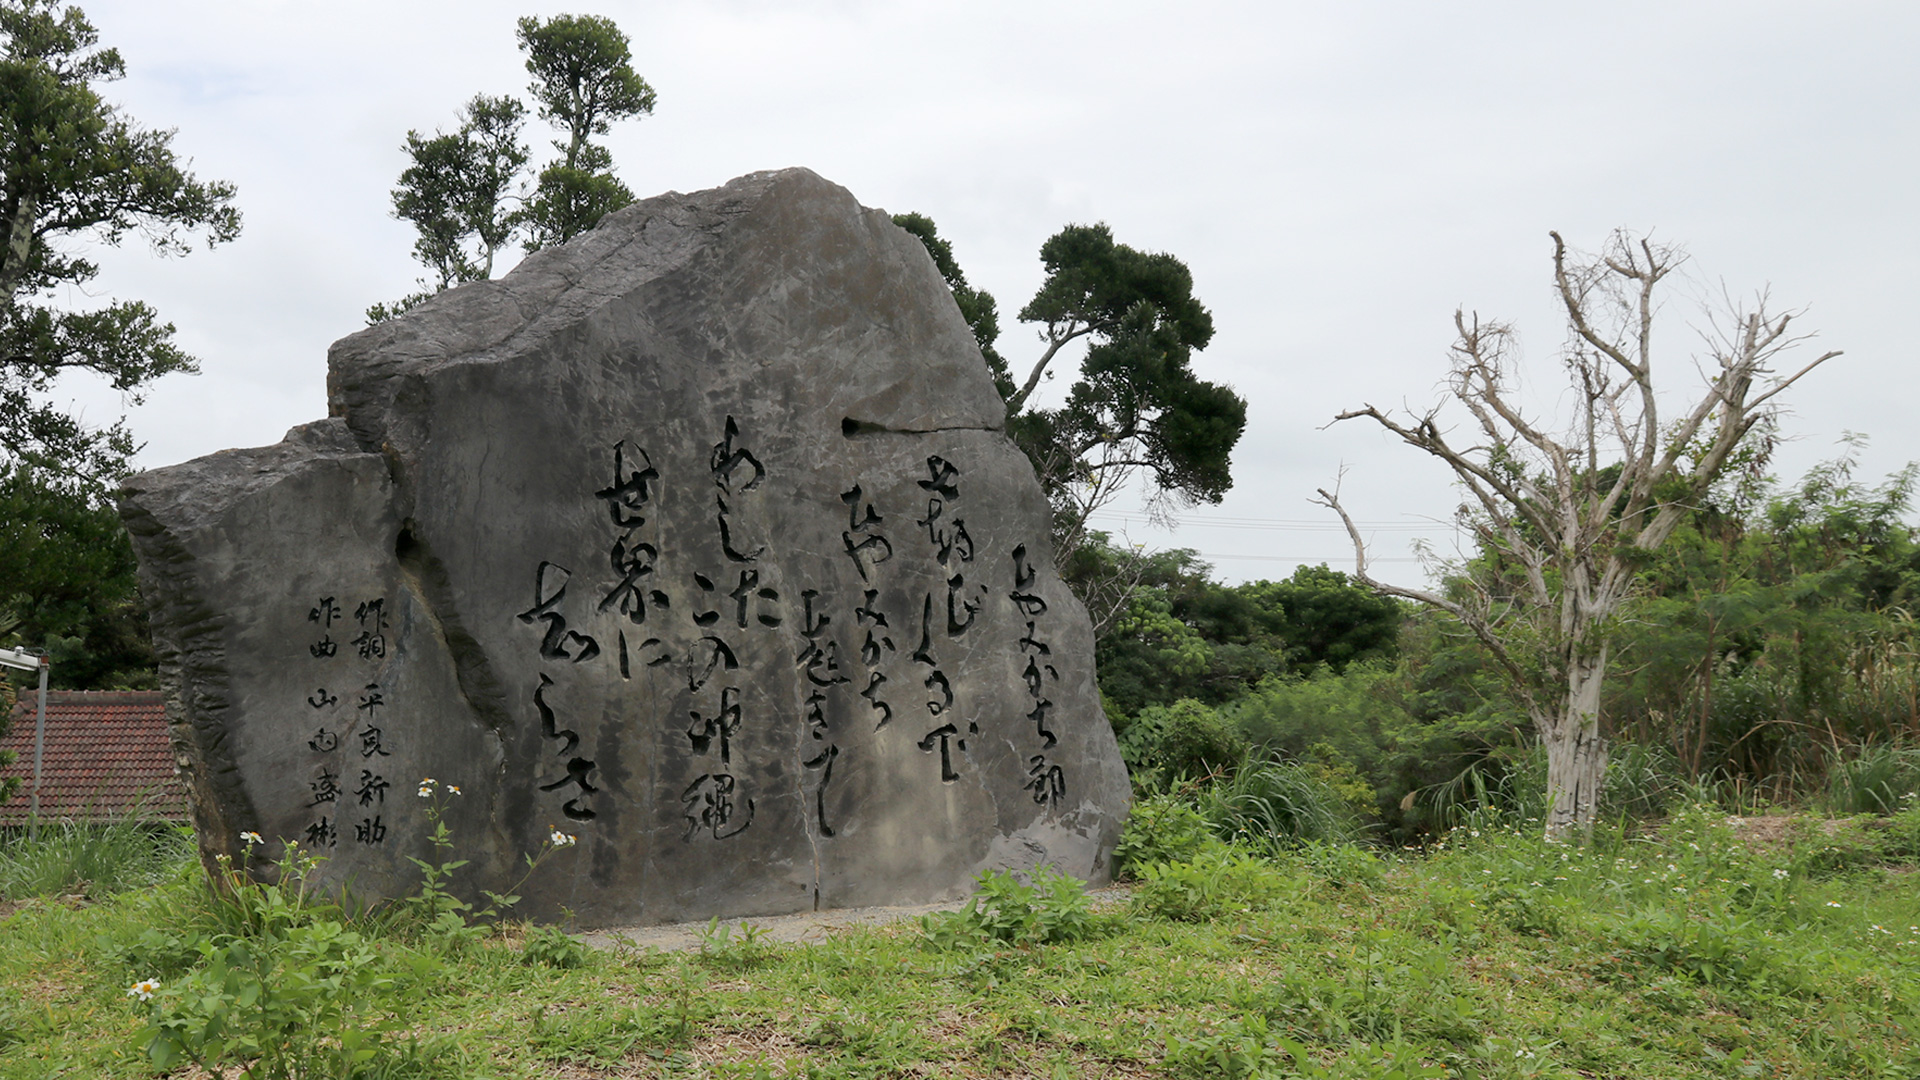 ひやみかち節
七転び
くるで
ひやみかち
起きて
わした
この沖縄
世界に
志らさ
作詞 平良新助
作曲 山内盛彬